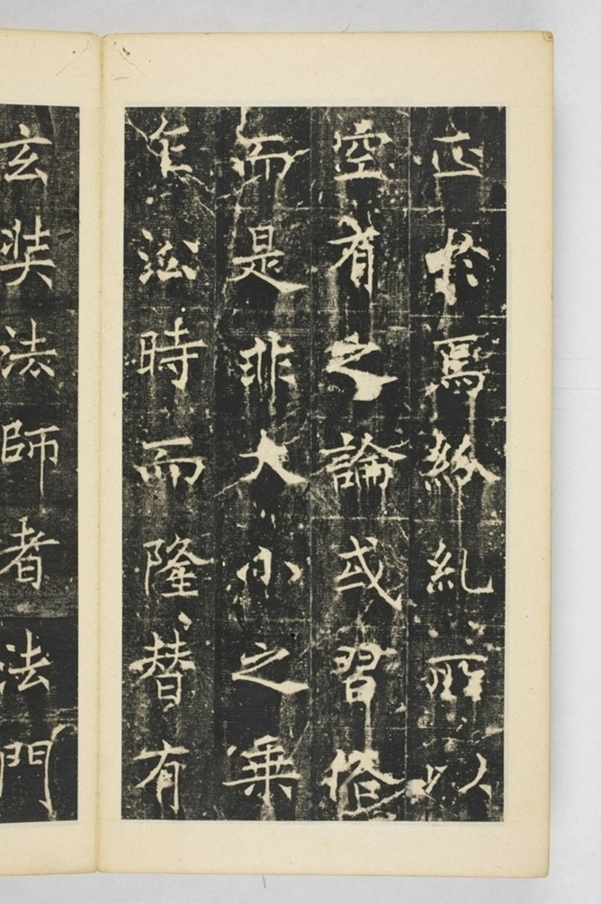 正於焉紛糺所以
空有之論或習俗
而是非大小之乗
乍沿時而隆替有
玄奘法師者法門